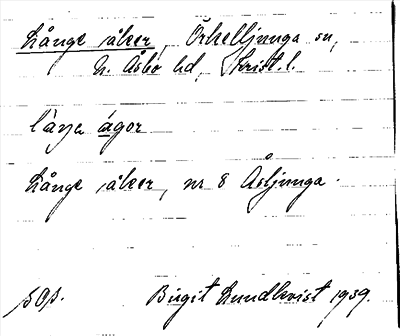 Långe åker, Örkelljunga sn,
N. Åsbo hd, Krist. l.
låŋa ågor
Långe åker, nr 8 Åsljunga.
sOp. Birgit Lundkvist 1939.